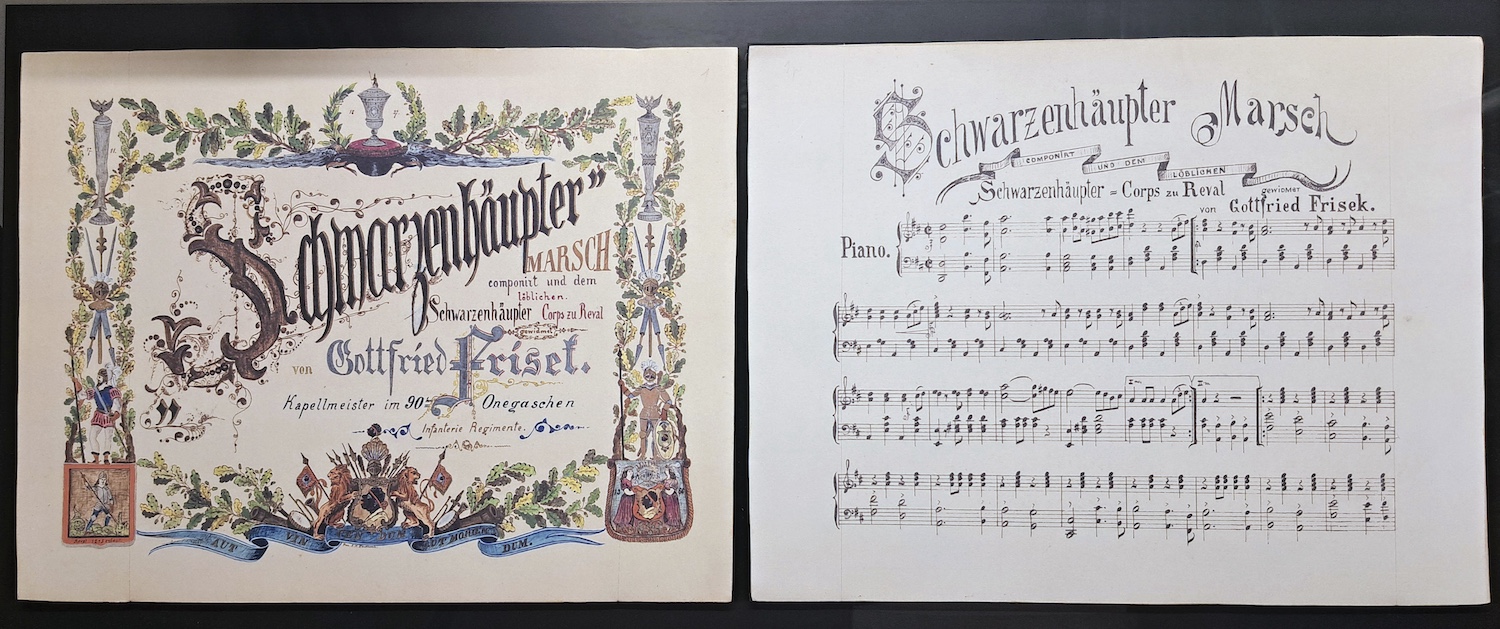 „Schwarzenhäupter”
MARSCH
componirt und dem
löblichen.
Schwarzenhäupter Corps zu Reval
gewidmet
von Gottfried Frisek.
Kapellmeister im 90ten Onegaschen
Infanterie Regimente.
AUT VINCENDUM AUT MORIENDUM.
Schwarzenhäupter Marsch
COMPONIRT UND DEM LÖBLICHEN
Schwarzenhäupter = Corps zu Reval gewidmet
von Gottfried Frisek.
Piano.